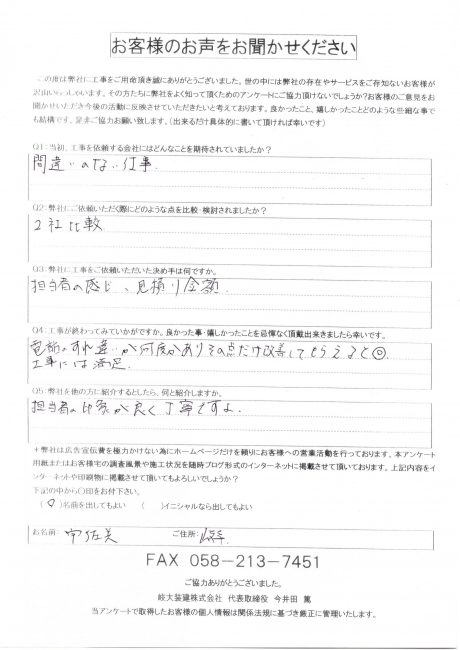 お客様のお声をお聞かせください
この度は弊社に工事をご用命頂き誠にありがとうございました。世の中には弊社の存在やサービスをご存知ないお客様が
沢山いらっしゃいます。その方たちに弊社をよく知って頂くためのアンケートにご協力頂けないでしょうか?お客様のご意見をお
聞かせいただき今後の活動に反映させていただきたいと考えております。良かったこと、嬉しかったことどのような些細な事で
も結構です、是非ご協力お願い致します。(出来るだけ具体的に書いて頂ければ幸いです)
Q1:当初、工事を依頼する会社にはどんなことを期待されていましたか?
間違いのない仕事.
Q2:弊社にご依頼いただく際にどのような点を比較・検討されましたか?
2社比較
Q3:弊社に工事をご依頼いただいた決め手は何ですか。
担当者の感じ、見積り金額.
Q4:工事が終わってみていかがですか。良かった事・嬉しかったことを忌憚なく頂戴出来きましたら幸いです。
電話のすれ違いが何度かありその点だけ改善してもらえると◎
工事には満足.
Q5:弊社を他の方に紹介するとしたら、何と紹介しますか。
担当者の印象が良く丁寧ですよ.
+弊社は広告宣伝費を極力かけない為にホームページだけを頼りにお客様への営業活動を行っております、本アンケート
用紙またはお客様宅の調査風景や施工状況を随時ブログ形式のインターネットに掲載させて頂いております。上記内容をイ
ンターネットや印刷物に掲載させて頂いてもよろしいでしょうか?
下記の中から○印をお付下さい。
(○)名前を出してもよい (  )イニシャルなら出してもよい
お名前: 宇佐美 ご住所:
FAX 058-213-7451
ご協力ありがとうございました。
岐大装建株式会社 代表取締役 今井田 篤
当アンケートで取得したお客様の個人情報は関係法規に基づき厳正に管理いたします。